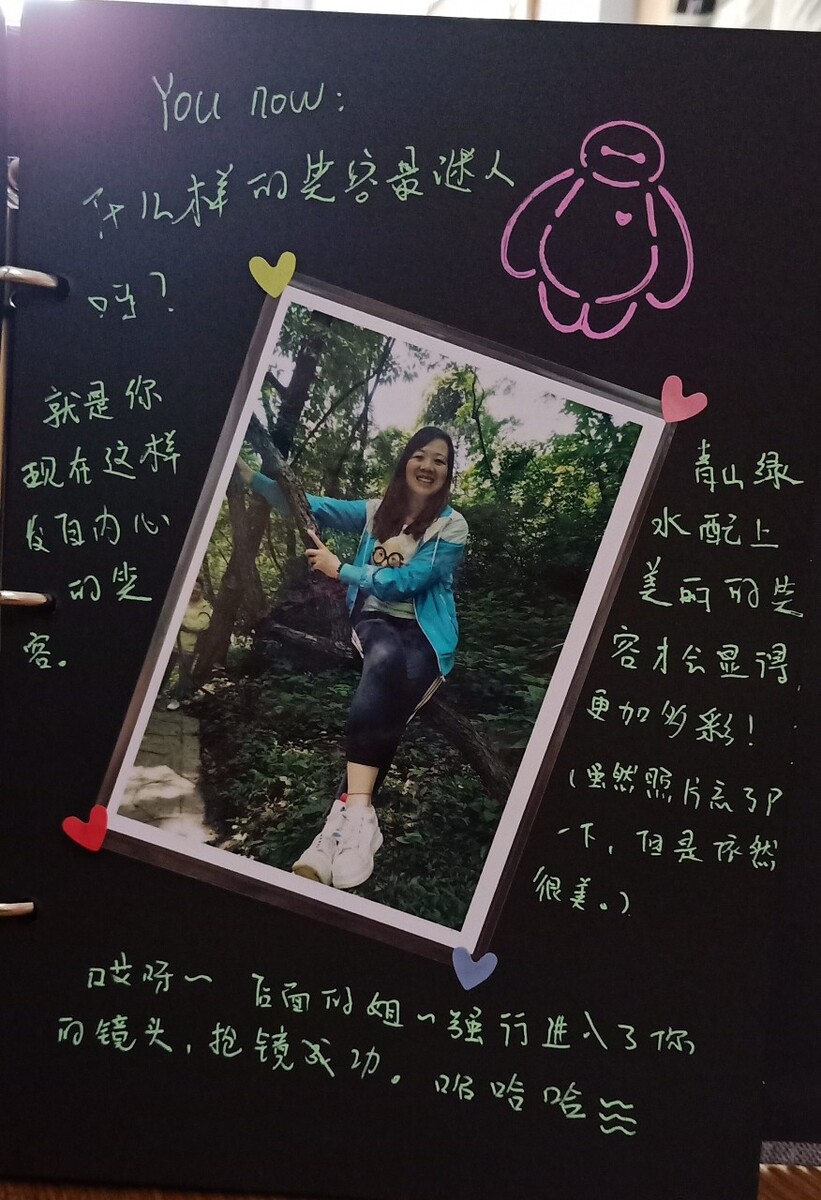 You now:
什么样的笑容最迷人
呀?
就是你
现在这样
发自内心
的笑
容。
青山绿
水配上
美丽的笑
容才会显得
更加多彩!
(虽然照片忘了P
一下,但是依然
很美。)
哎呀~ 后面的姐~强行进入了你
的镜头,抢镜成功。哈哈哈